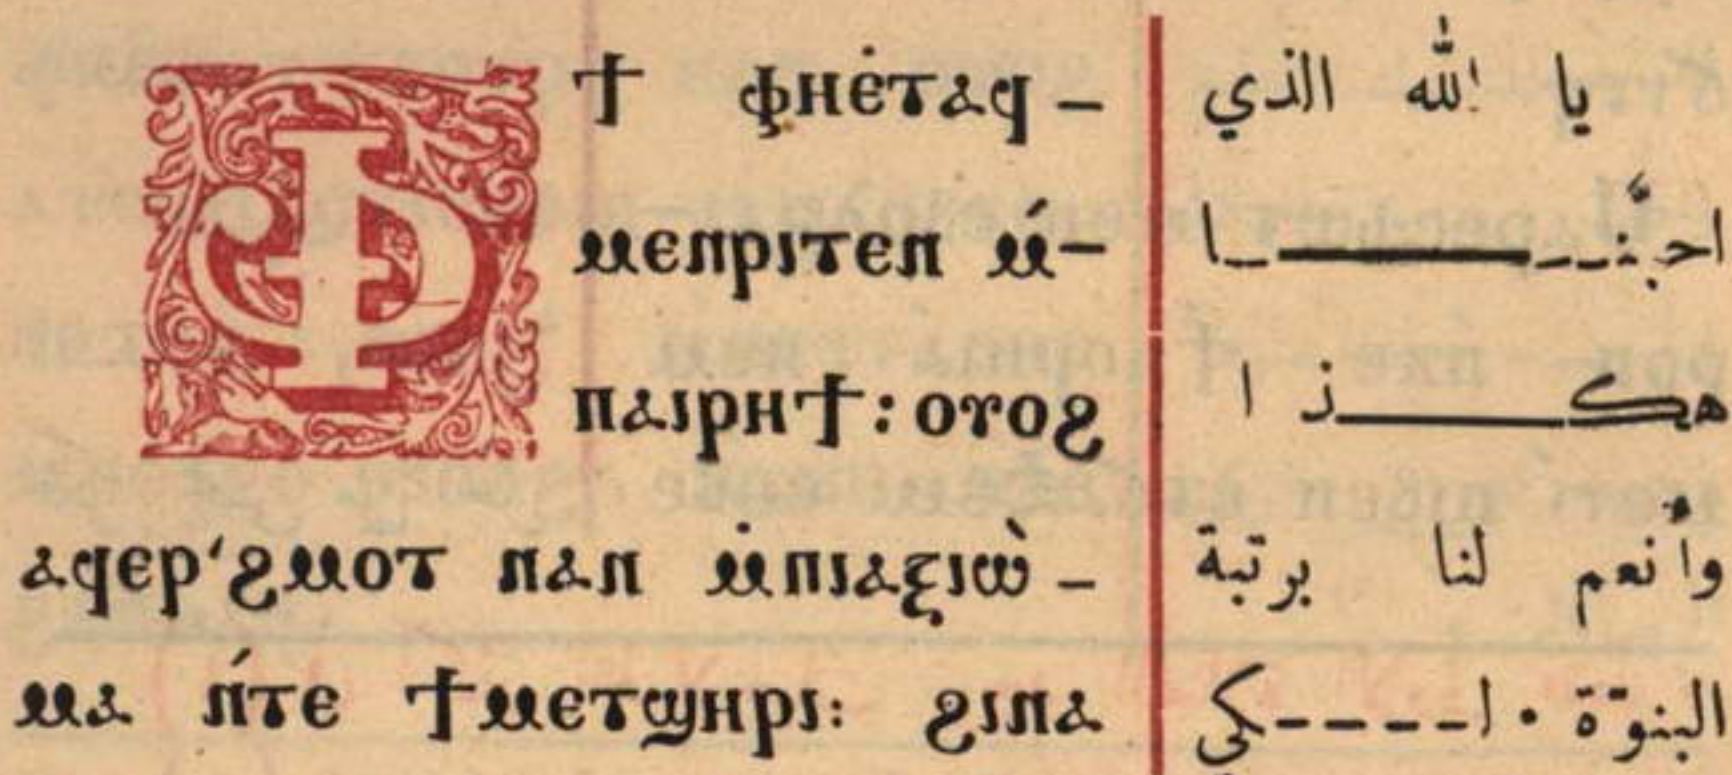 Ϥϯ ⲫⲏⲉ̇ⲧⲁϥ-
ⲙⲉⲛⲣⲓⲧⲉⲛ ⲙ̀-
ⲡⲁⲓⲣⲏϯ: ⲟⲩⲟϩ
ⲁϥⲉⲣ'ϩⲙⲟⲧ ⲛⲁⲛ ⲙ̇ⲡⲓⲁⲝⲓⲱ̀-
ⲙⲁ ⲛ̀ⲧⲉ ϯⲙⲉⲧϣⲏⲣⲓ: ϩⲓⲛⲁ
يا الله الذي
احبّنا
هكذا
وأنعم لنا برتبة
البنوّة . لكي